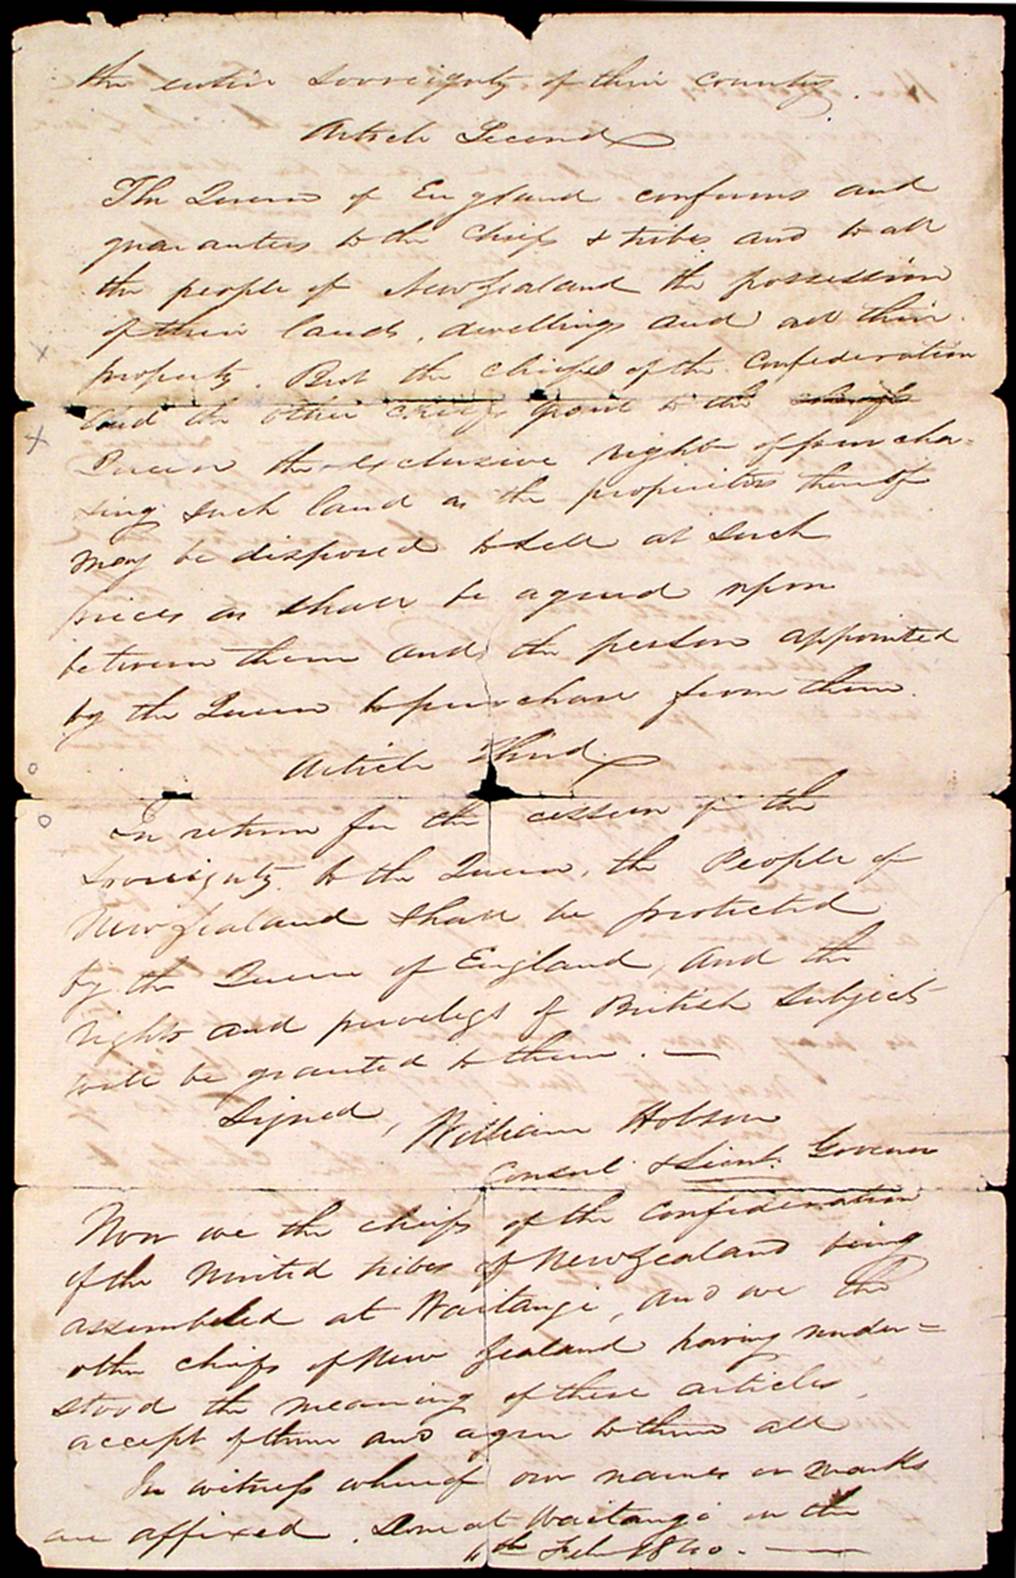 the entire sovreignty of their country.
Article Second
The Queen of England confirms and
guarantees to the chiefs & tribes and to all
the people of New Zealand the possession
of their lands, dwellings and all their
property. But the chiefs of the Confederation
and the other chiefs grant to the chiefs
Queen the exclusive right of purcha-
sing such land as the proprietors thereof
may be disposed to sell at such
prices as shall be agreed upon
between them and the person appointed
by the Queen to purchase from them.
Article Third
In return for the cession of the
Sovreignty to the Queen, the People of
New Zealand shall be protected
by the Queen of England, and the
rights and privelegs of British subjects
will be granted to them. —
Signed, William Hobson
Consul & Lieut. Govenor
Now we the chiefs of the Confederation
of the United tribes of New Zealand being
assembled at Waitangi, and we the
other chiefs of New Zealand having under=
stood the meaning of these articles,
accept of them and agree to them all
In witness whereof our names or marks
are affixed. Done at Waitangi on the
th Feby 1840. —